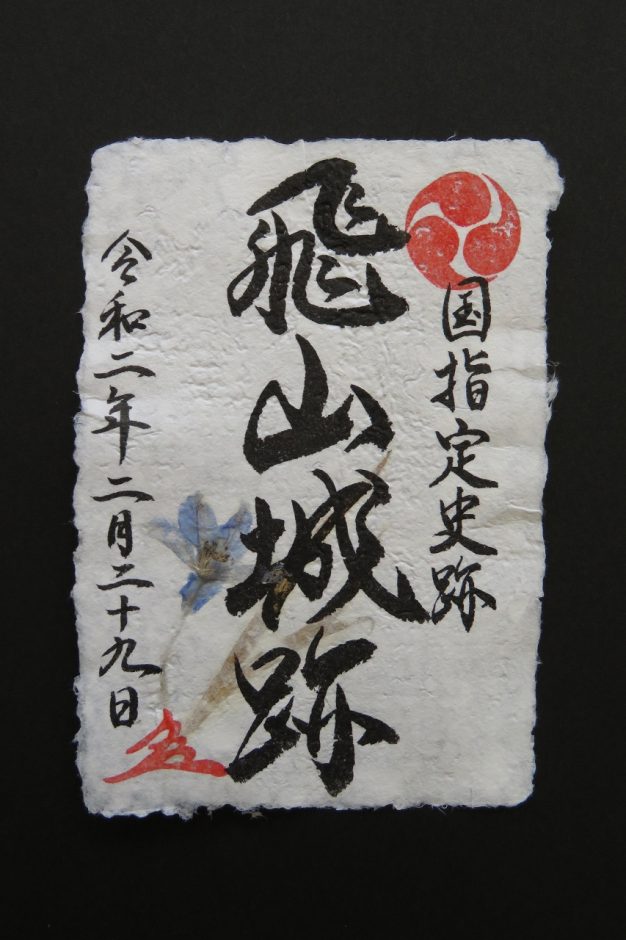 国指定史跡
飛山城跡
令和二年二月二十九日